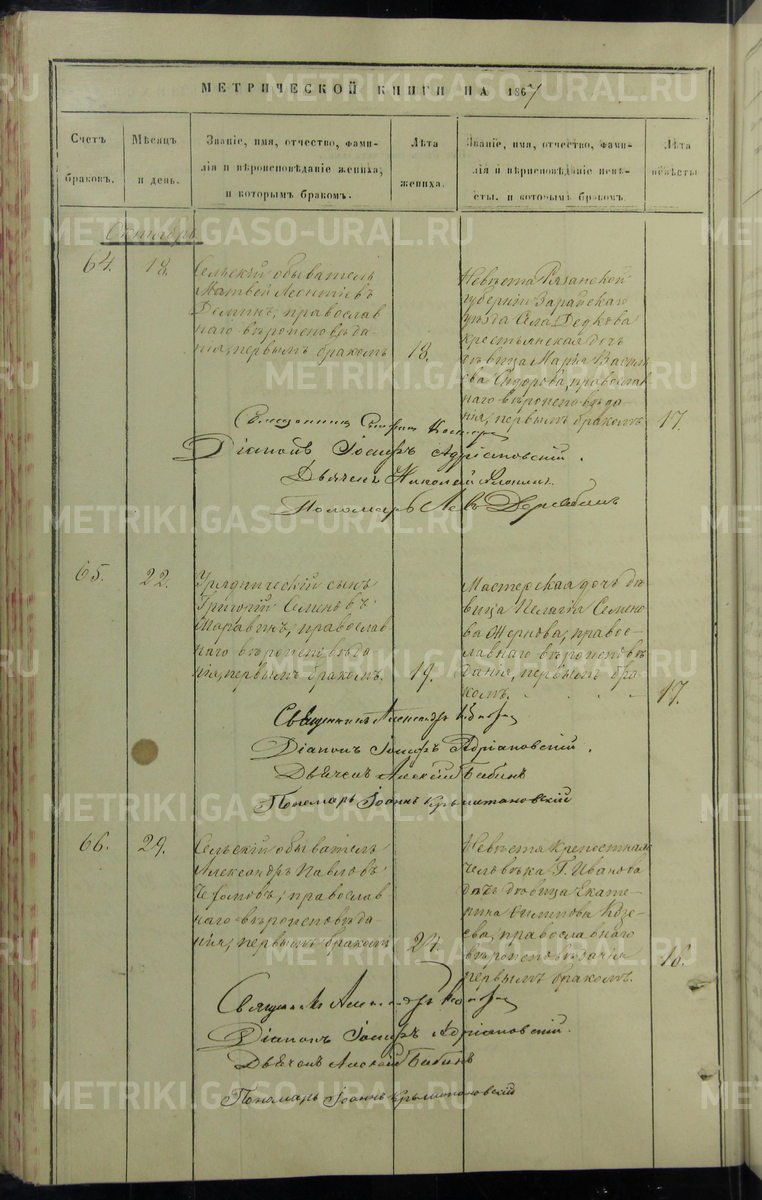 МЕТРИЧЕСКОЙ КНИГИ НА 1867
Счетъ
браковъ.
Мѣсяцъ
и день.
Званіе, имя, отчество, фами-
лія и вѣроисповѣданіе жениха,
и которымъ бракомъ.
Лѣта
жениха.
Званіе, имя, отчество, фами-
лія и вѣрисповѣданіе невѣ-
сты, и которымъ бракомъ.
Лѣта
невѣсты
64.
18.
Сельскій обыватель
Матвей Леонтіевъ
Деминъ, православ
наго вѣроисповѣда-
нія, первымъ бракомъ
18.
Невѣста Рязанской
губерніи Зарайскаго
уѣзда Села Дедкова
крестьянская дочь
дѣвица Марья Василь
ева Сидорова, православ
наго вѣроисповѣда-
нія, первымъ бракомъ
17.
Священникъ
Діаконъ Іосифъ Адріановскій.
Дьячекъ Николай
Пономарь Левъ
65.
22.
Урядническій сынъ
Григорій Семеновъ
православ
наго вѣроисповѣда-
нія, первымъ бракомъ.
19.
Мастерская дочь дѣ
вица Пелагія Семено
ва правос-
лавнаго вѣроисповѣ
данія, первымъ бра-
комъ.
17.
Священникъ Александръ
Діаконъ Іосифъ Адріановскій.
Дьячекъ Алексій Бабинъ
Пономарь Іоаннъ
66.
29.
Сельскій обыватель
Александръ Павловъ
православ
наго вѣроисповѣда-
нія, первымъ бракомъ
24.
Невѣста Крепостнаго
человѣка Г. Иванова
дочь дѣвица Екате-
рина Филипова
ева, православнаго
вѣроисповѣданія
первымъ бракомъ.
18.
Священникъ Александръ
Діаконъ Іосифъ Адріановскій.
Дьячекъ Алексій Бабинъ
Пономарь Іоаннъ
METRIKI.GASO-URAL.RU